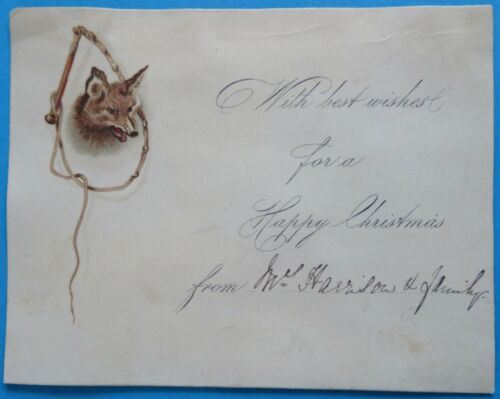 With best wishes
for a
Happy Christmas
from Mrs Harrison & family.